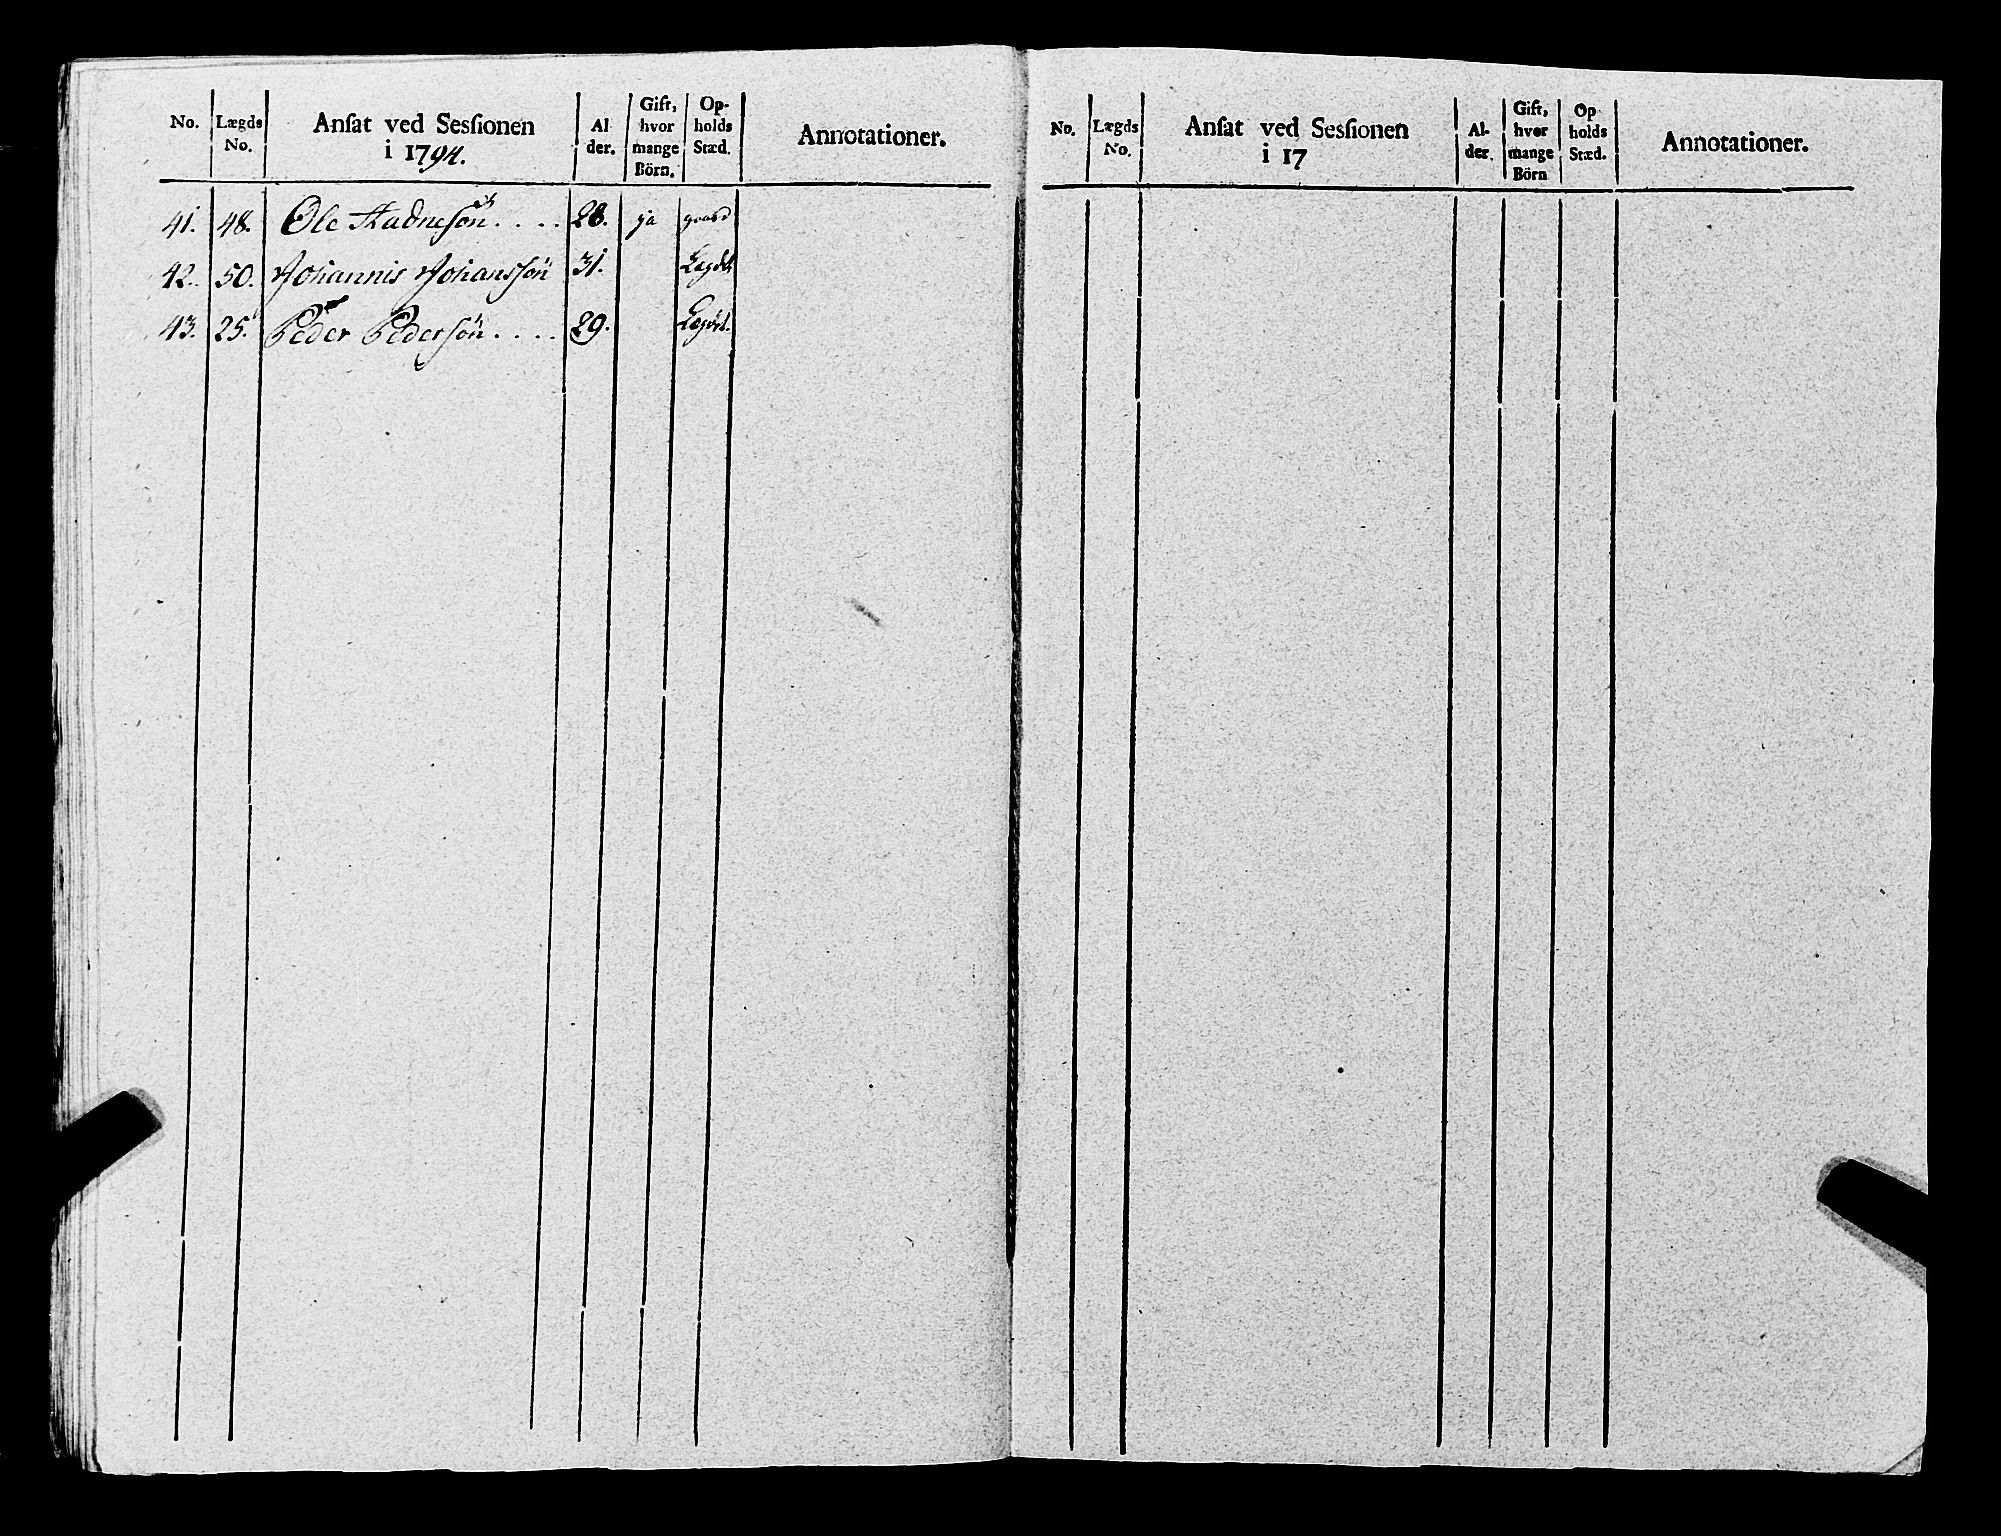 No. Lægds No. Ansat ved Sessionen i 1794. Al der. Gift, hvor mange Börn. Op- holds Stæd. Annotationer.
41. 48. Ole .... 28. ja
42. 50. Johannis Johanssön 31. Lægdet
43. 25. Peder Pedersön .... 29. Lægdet.
No. Lægds No. Ansat ved Sessionen i 17 Al- der. Gift, hvor mange Börn Op holds Stæd. Annotationer.